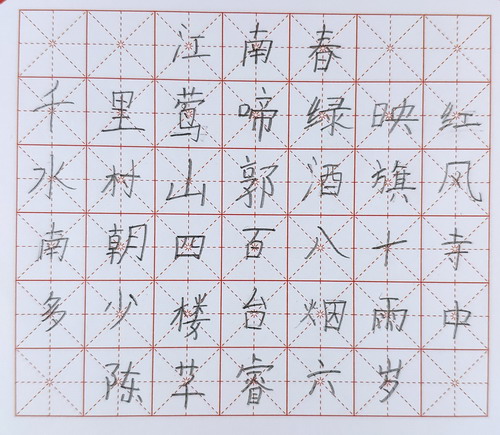 江南春
千里莺啼绿映红
水村山郭酒旗风
南朝四百八十寺
多少楼台烟雨中
陈睿六岁